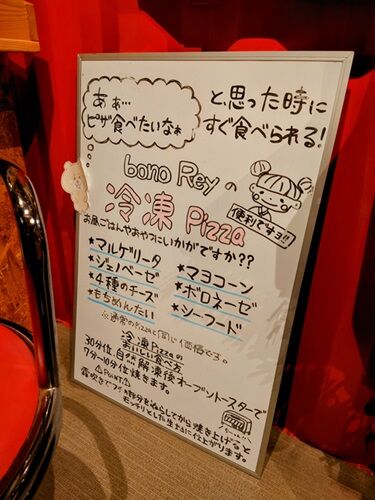 あぁ…
ピザ食べたいなぁ
と、思った時に
すぐ食べられる!
bono Reyの
冷凍 Pizza
便利ですョ!!
お昼ごはんやおやつにいかがですか??
★マルゲリータ
★ジェノベーゼ
★4種のチーズ
★もちめんたい
★マヨコーン
★ボロネーゼ
★シーフード
※通常のPizzaと同じ価格です。
冷凍Pizzaの
おいしい食べ方
30分位、自然解凍後オーブントースターで
7分〜10分位焼きます。
△POINT△
霧吹きでフチ部分を濡らしてから焼き上げると
モッチリとした生地に仕上がります。